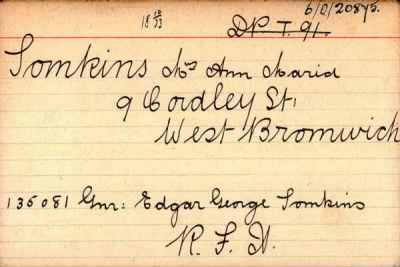 6/0/20875.
D.P. T. 91.
Tomkins Mrs Ann Maria
9 Cordley St,
West Bromwich
135081 Gnr: Edgar George Tomkins
R. F. A.